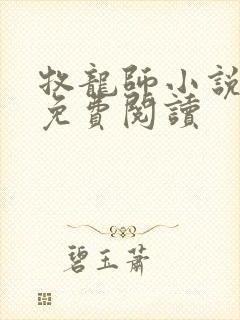 牧龍師小說
免費閱讀
碧玉蕭